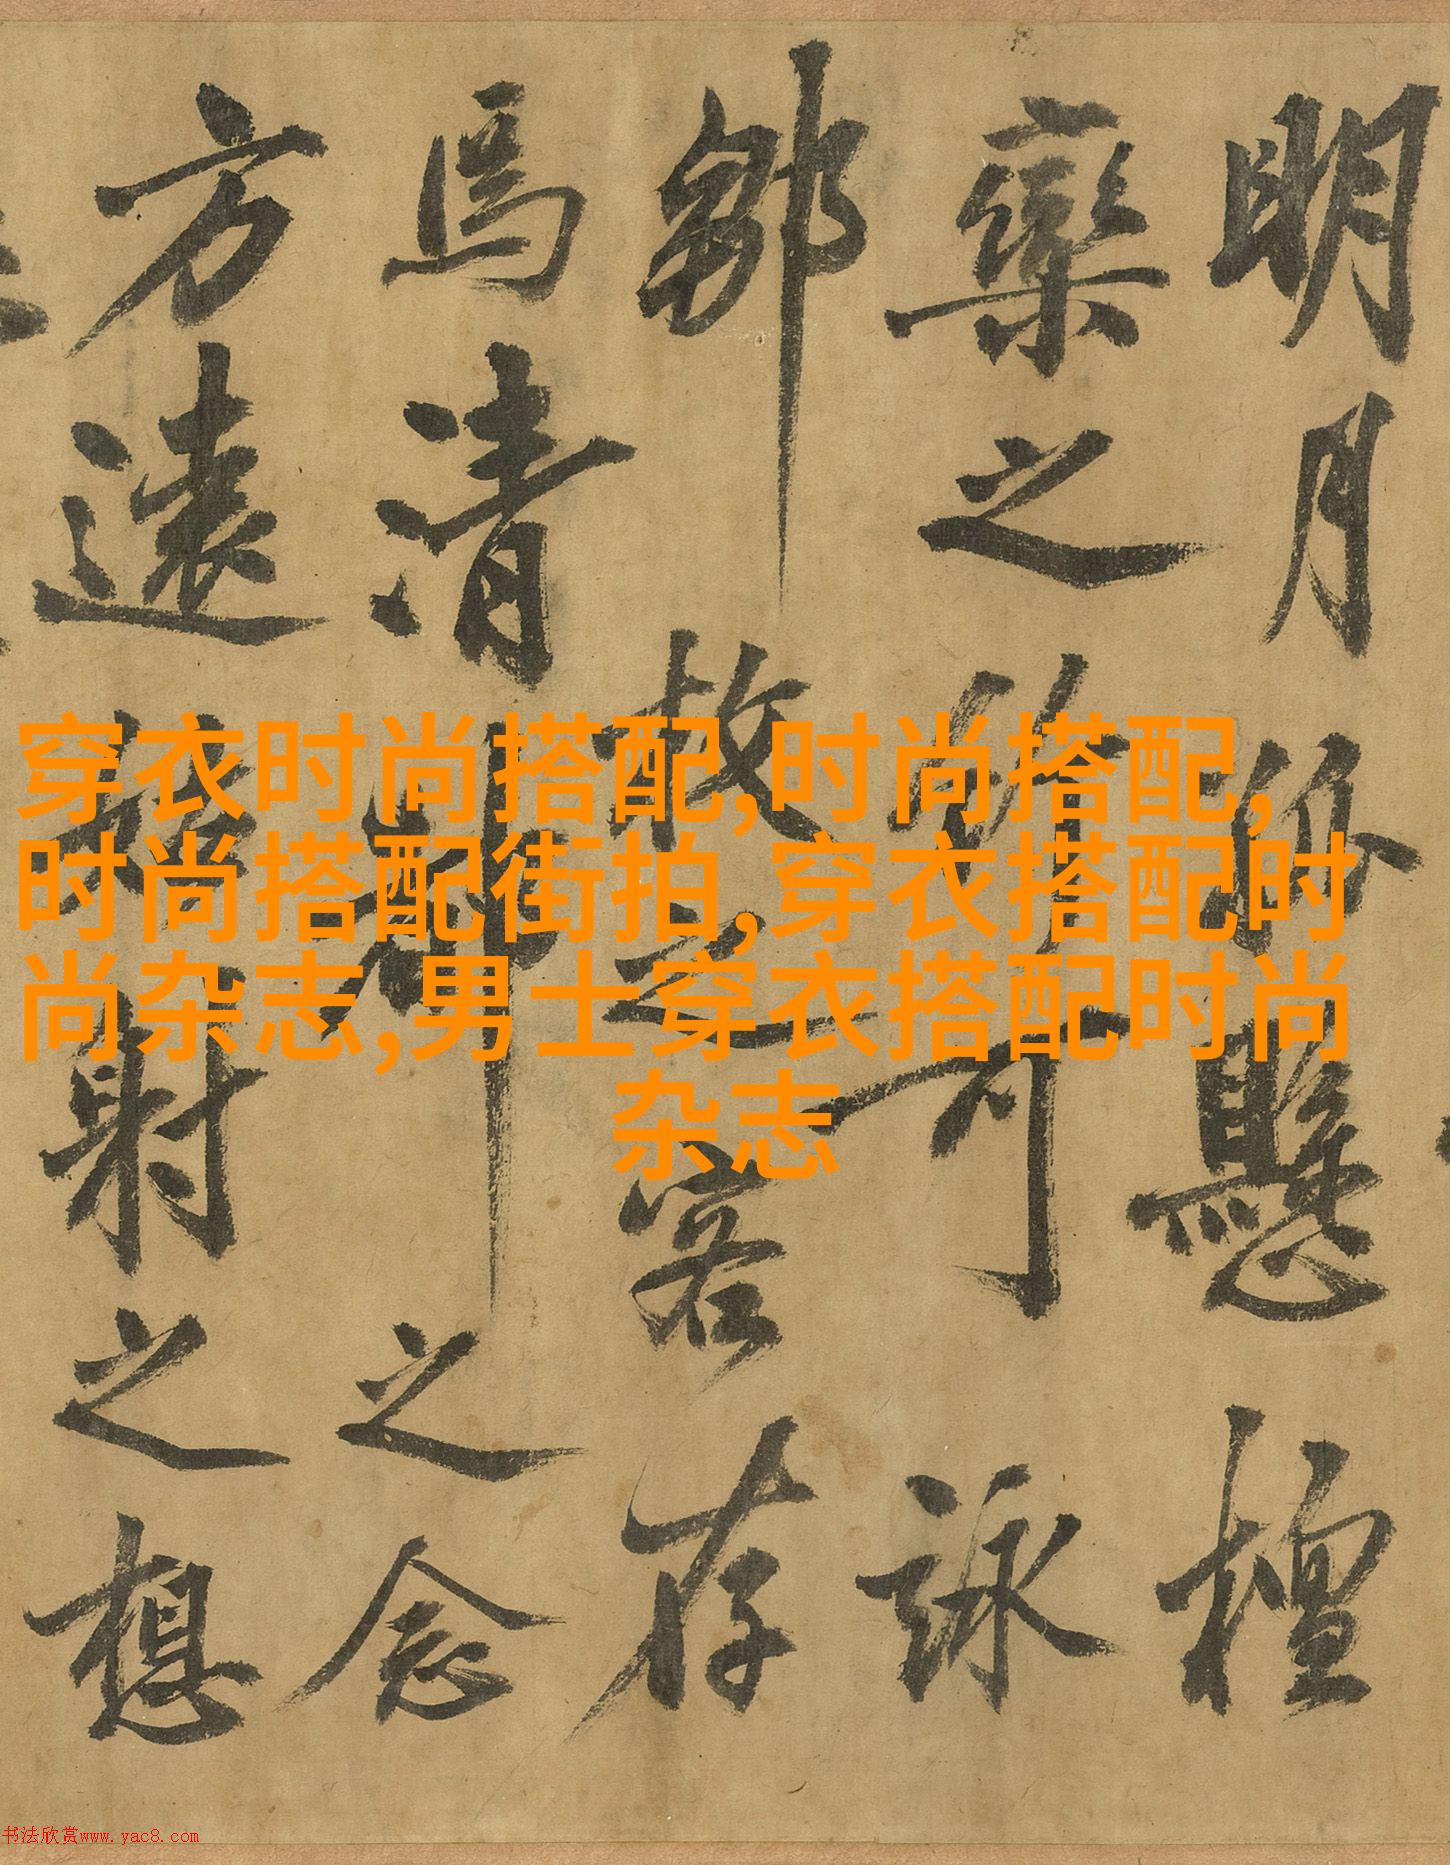 明月懸檀
欒之竹可詠
鄒枚之客存
焉清之念
方遠姑射之想
穿衣时尚搭配,时尚搭配,
时尚搭配街拍,穿衣搭配时
尚杂志,男士穿衣搭配时尚
杂志
书法欣赏www.yac8.com